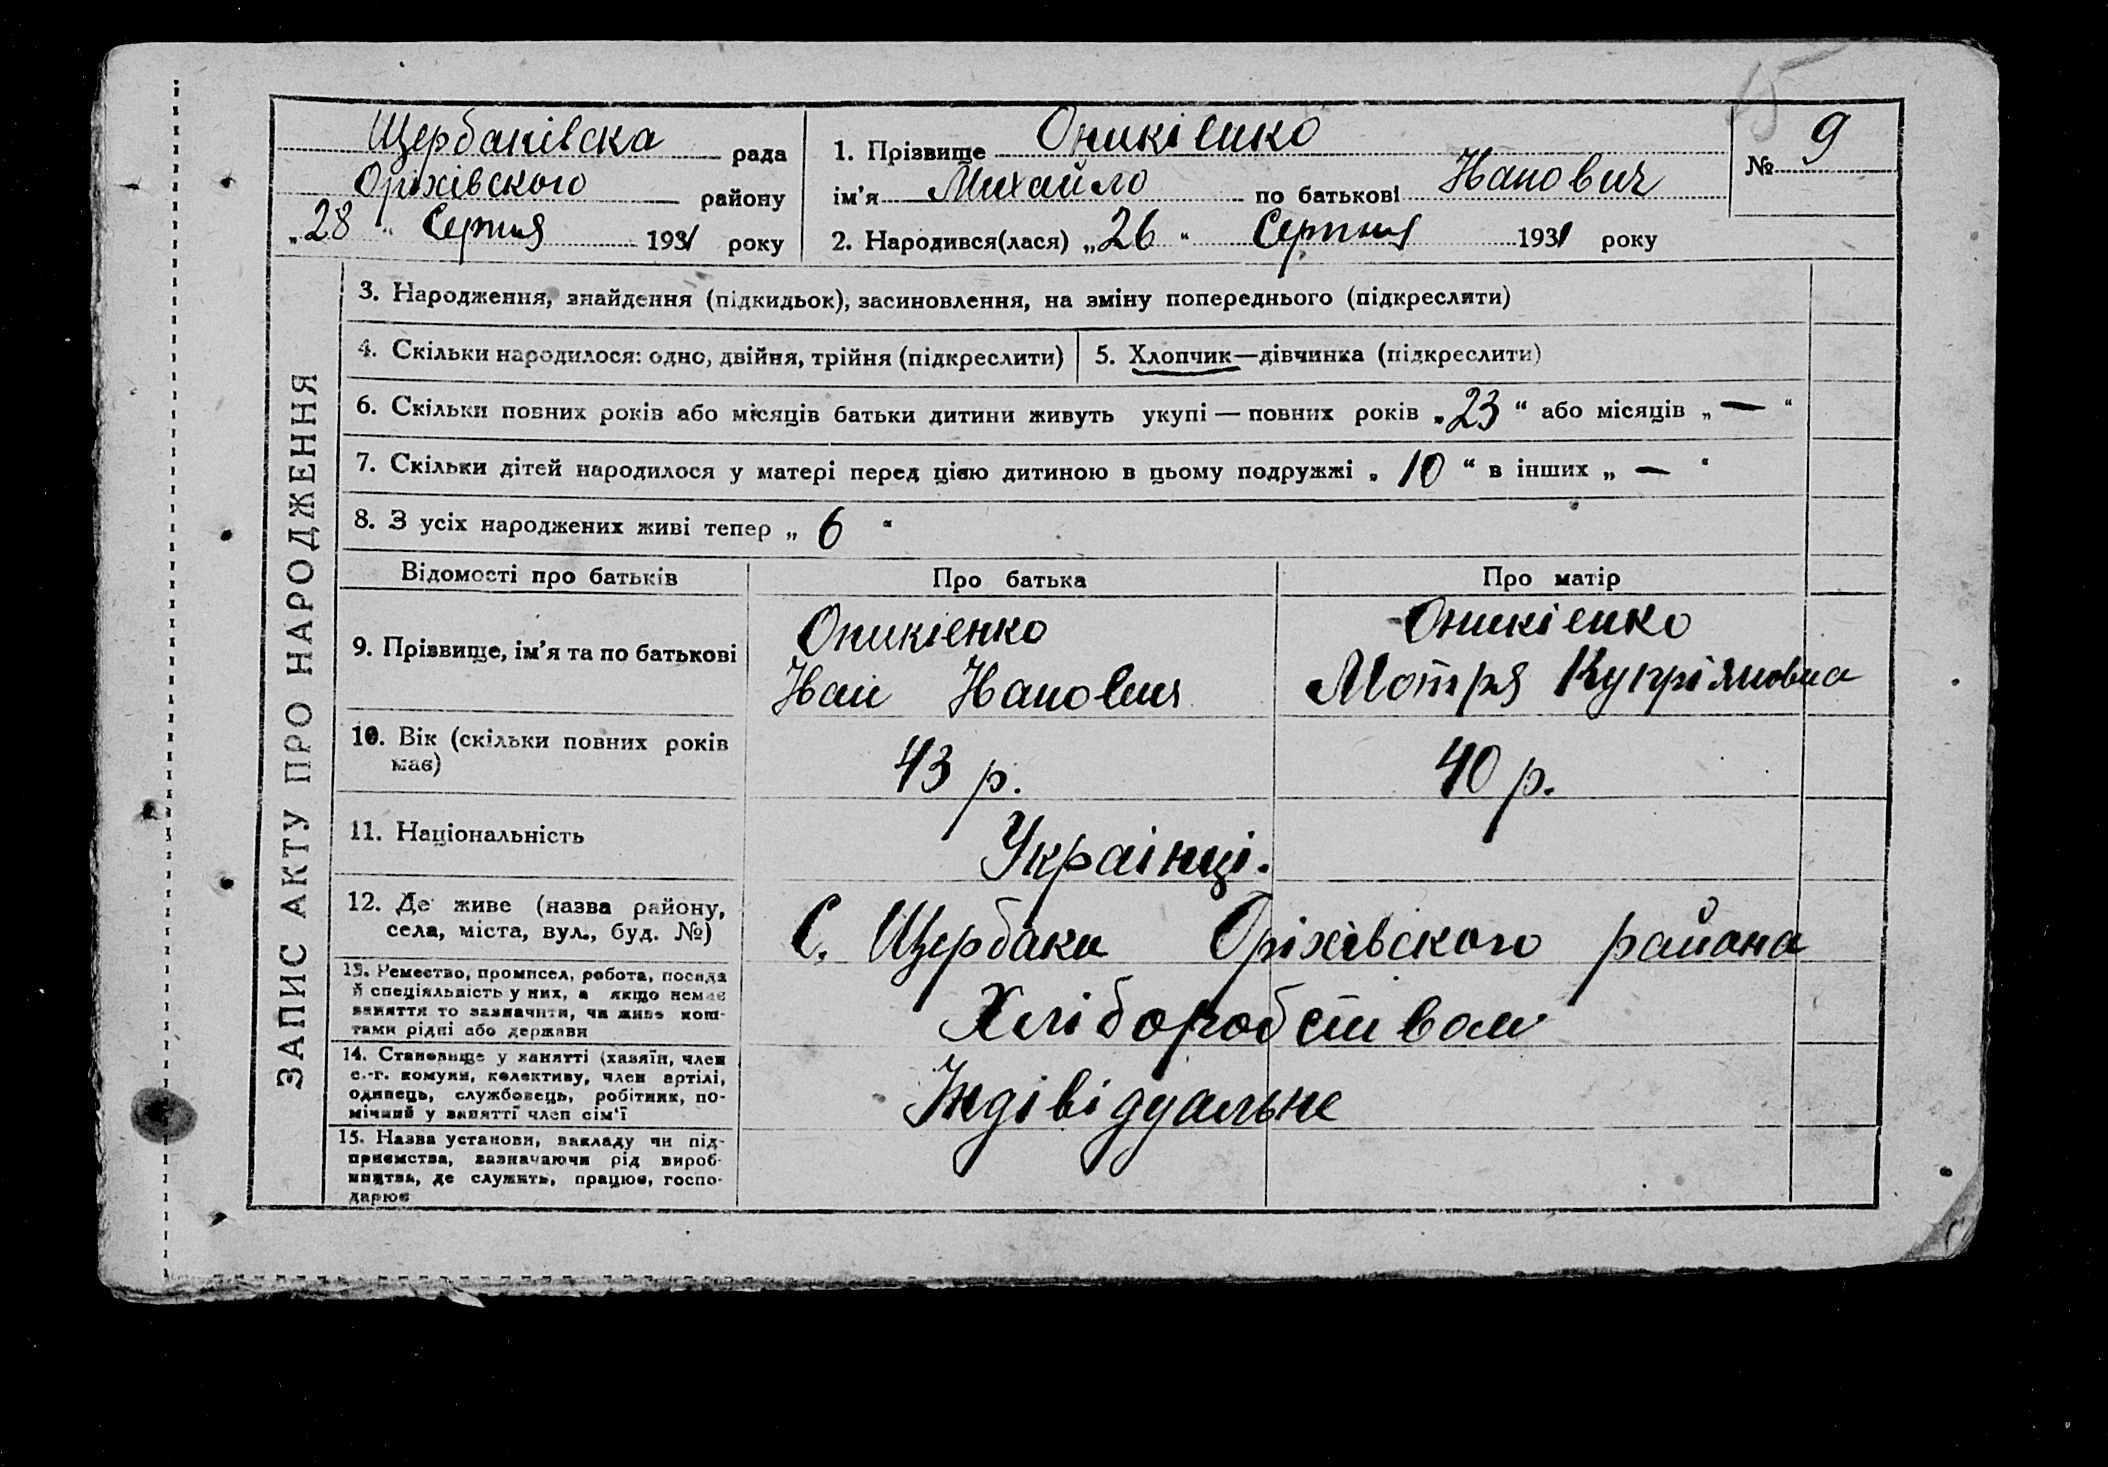 15
Щербаківска рада
Оріхівского району
„28“ Серпня 1931 року
1. Прізвище Оникіенко
ім’я Михайло по батькові Іванович
№ 9
2. Народився(лася) „26“ Серпня 1931 року
ЗАПИС АКТУ ПРО НАРОДЖЕННЯ
3. Народження, знайдення (підкидьок), засиновлення, на зміну попереднього (підкреслити)
4. Скільки народилося: одно, двійня, трійня (підкреслити)
5. Хлопчик—дівчинка (підкреслити)
6. Скільки повних років або місяців батьки дитини живуть укупі — повних років „23“ або місяців „—“
7. Скільки дітей народилося у матері перед цією дитиною в цьому подружжі „10“ в інших „—“
8. З усіх народжених живі тепер „6“
Відомості про батьків Про батька Про матір
9. Прізвище, ім’я та по батькові
Оникіенко
Іван Іванович
Оникіенко
Мотря Купріяновна
10. Вік (скільки повних років
має)
43 р. 40 р.
11. Національність
Українці.
12. Де живе (назва району,
села, міста, вул., буд. №)
С. Щербаки Оріхівского района
13. Ремество, промисел, робота, посада
й спеціяльність у них, а якщо немає
заняття то зазначити, чи живе кош-
тами рідні або держави
Хліборобством
14. Становище у занятті (хазяїн, член
с.-г. комуни, колективу, член артілі,
одинець, службовець, робітник, по-
мічний у занятті член сім’ї
Індівідуальне
15. Назва установи, закладу чи під-
приємства, зазначаючи рід вироб-
ництва, де служить, працює, госпо-
дарює